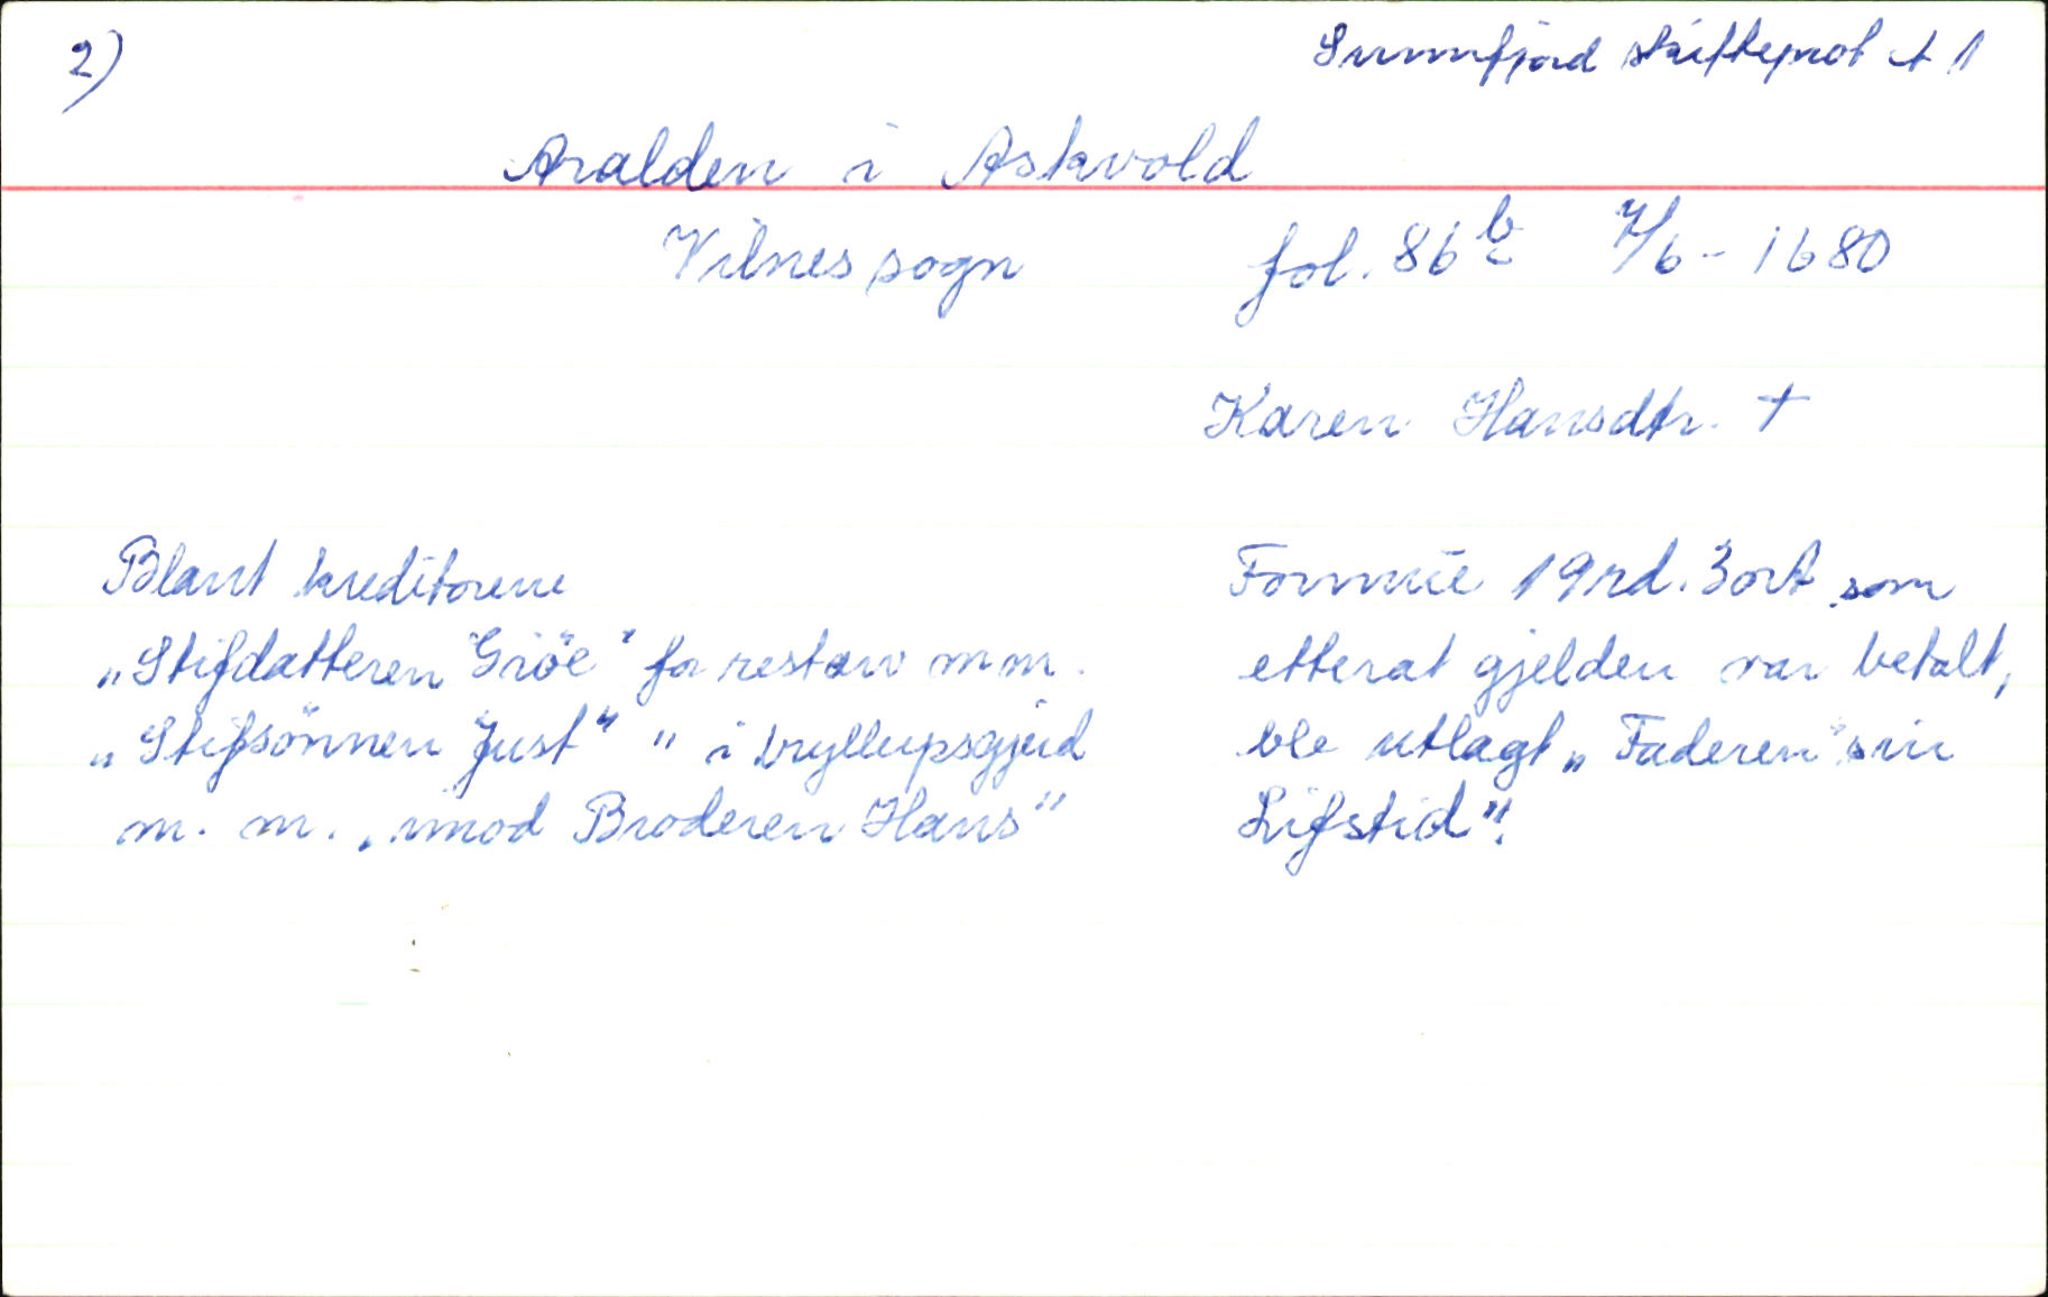 2)
Sunnfjord skifteprot A 1
Aralden i Askvold
Vilnes sogn fol. 86 b 7/6 - 1680
Karen Hansdtr. †
Blant kreditorene
„Stifdatteren Gröe" for restarv m m.
„Stifsönnen Just" " i bryllupsgjeld
m. m. „imod Broderen Hans"
Formue 19 rd. 3 ort som
etterat gjelden var betalt,
ble utlagt „Faderen sin
Lifstid".